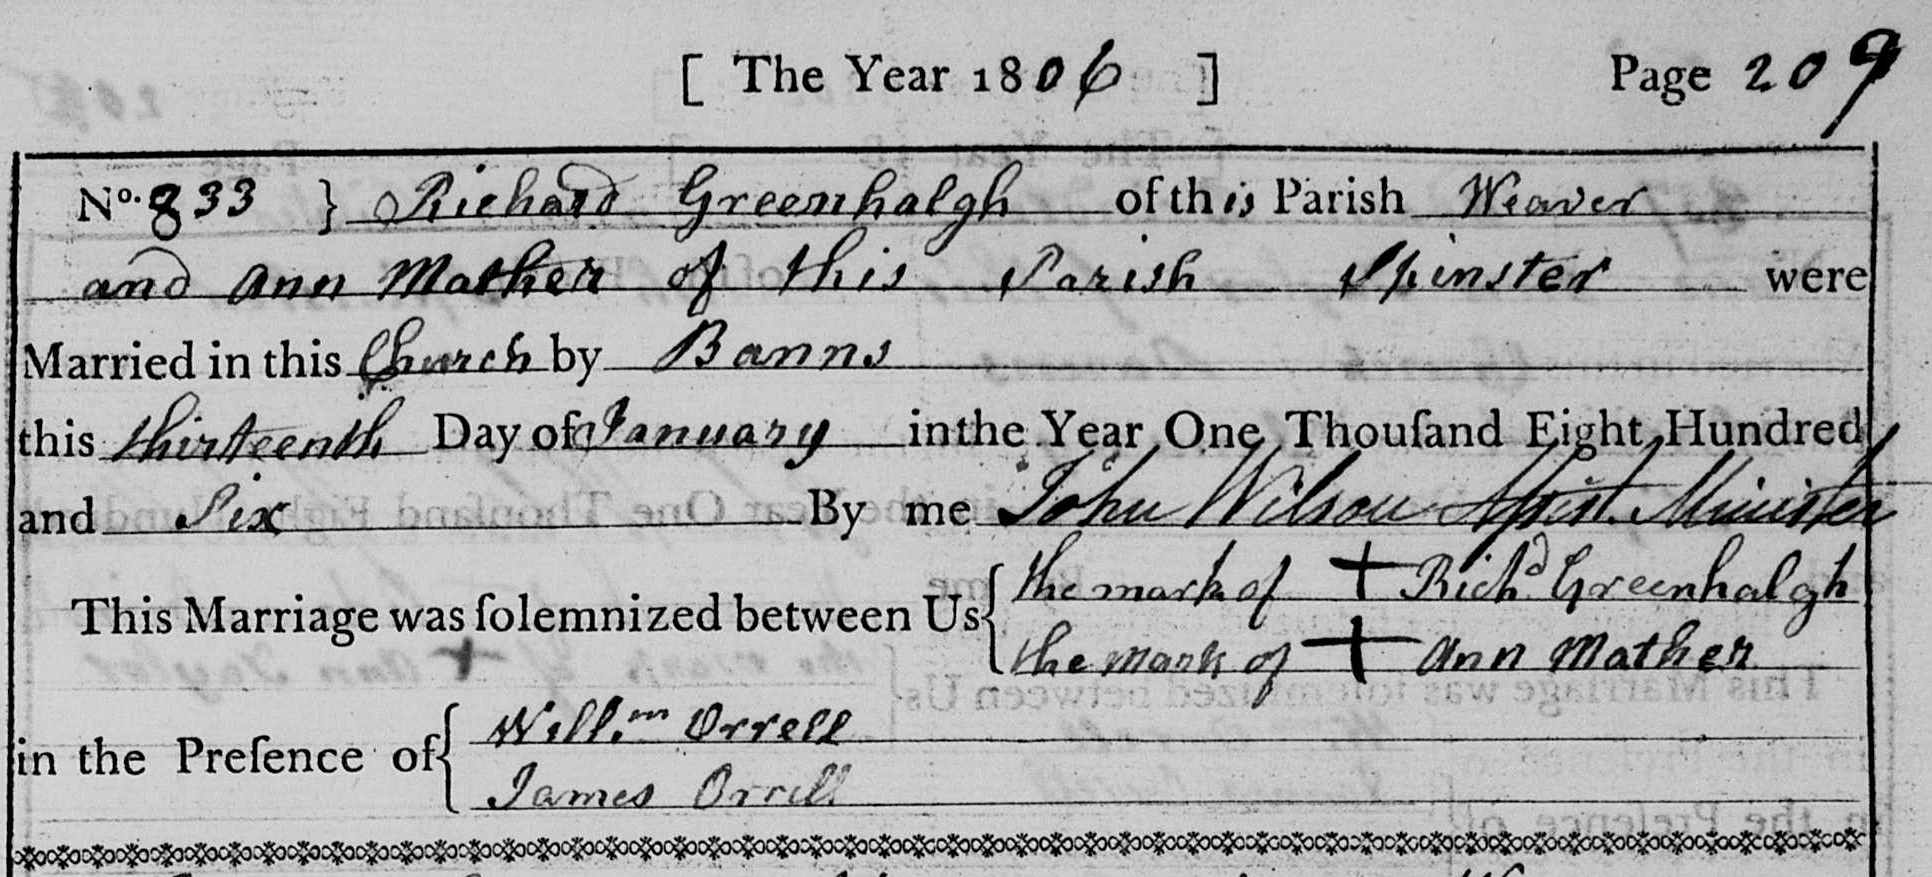 [ The Year 1806 ] Page 209
No. 833 } Richard Greenhalgh of this Parish Weaver
and Ann Mather of this Parish Spinster were
Married in this Church by Banns
this thirteenth Day of January in the Year One Thouſand Eight Hundred
and Six By me John Wilson Aſsist. Minister
This Marriage was ſolemnized between Us { the mark of + Richd. Greenhalgh
the mark of + Ann Mather
in the Preſence of { Willm. Orrell
James Orrill